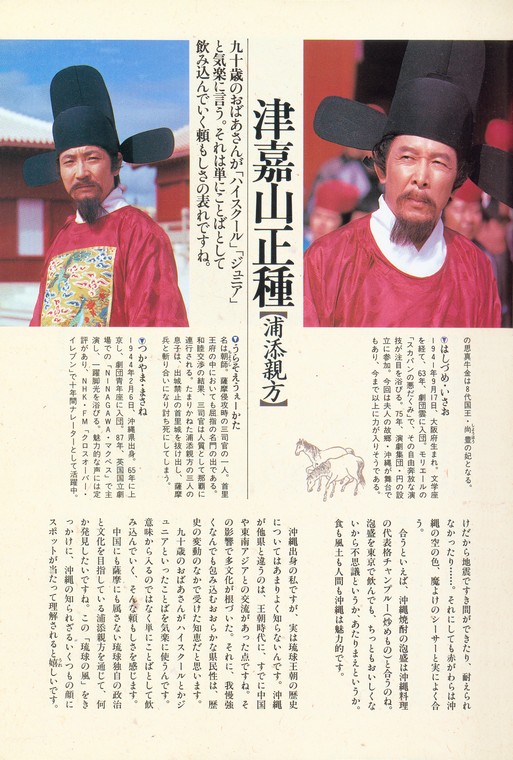 の思真牛金は8代国王・尚豊の妃となる。
はしづめ・いさお
1941年9月17日、大阪府生まれ。文学座
を経て、63年、劇団雲に入団。モリエールの
「スカパンの悪だくみ」で、その自由奔放な演
技が注目を浴びる。75年、演劇集団・円の設
立に参加。今回は夫人の故郷・沖縄が舞台で
もあり、今まで以上に力が入りそうである。
津嘉山正種【浦添親方】
九十歳のおばあさんが「ハイスクール」「ジュニア」
と気楽に言う。それは単にことばとして
飲み込んでいく頼もしさの表れですね。
うらそえうぇーかた
名は朝師。薩摩侵攻時の三司官の一人。首里
王府の中においても屈指の名門の出である。
和睦交渉の結果、三司官は人質として那覇に
連行される。たまりかねた浦添親方の三人の
息子は、出城禁止の首里城を抜け出し、薩摩
兵と斬り合いになり討ち死にしてしまう。
つかやま・まさね
1944年2月6日、沖縄県出身。65年に上
京し、劇団青年座に入団。87年、英国国立劇
場での「NINAGAWA・マクベス」で主
演し、一躍脚光を浴びる。魅力的な声には定
評があり、NHK・FM「クロスオーバー・
イレブン」で十年間ナレーターとして活躍中。
けだから地震ですき間ができたり、耐えられ
なかったり……。それにしても赤がわらは沖
縄の空の色、魔よけのシーサーと実によく合
う。
合うといえば、沖縄焼酎の泡盛は沖縄料理
の代表格チャンプルー(炒めもの)と合うのね。
泡盛を東京で飲んでも、ちっともおいしくな
いから不思議というか、あたりまえというか。
食も風土も人間も沖縄は魅力的です。
沖縄出身の私ですが、実は琉球王朝の歴史
についてはあまりよく知らないんです。沖縄
が他県と違うのは、王朝時代に、すでに中国
や東南アジアとの交流があった点ですね。そ
の影響で多文化が根づいた。それに、我慢強
くなんでも包み込むおおらかな県民性は、歴
史の変動のなかで受けた知恵だと思います。
九十歳のおばあさんがハイスクールとかジ
ュニアといったことばを気楽に使うんです。
意味から入るのではなく単にことばとして飲
み込んでいく、そんな頼もしさを感じます。
中国にも薩摩にも属さない琉球独自の政治
と文化を目指している浦添親方を通じて、何
か発見したいですね。この「琉球の風」をき
っかけに、沖縄の知られざるいくつもの顔に
スポットが当たって理解されると嬉しいです。